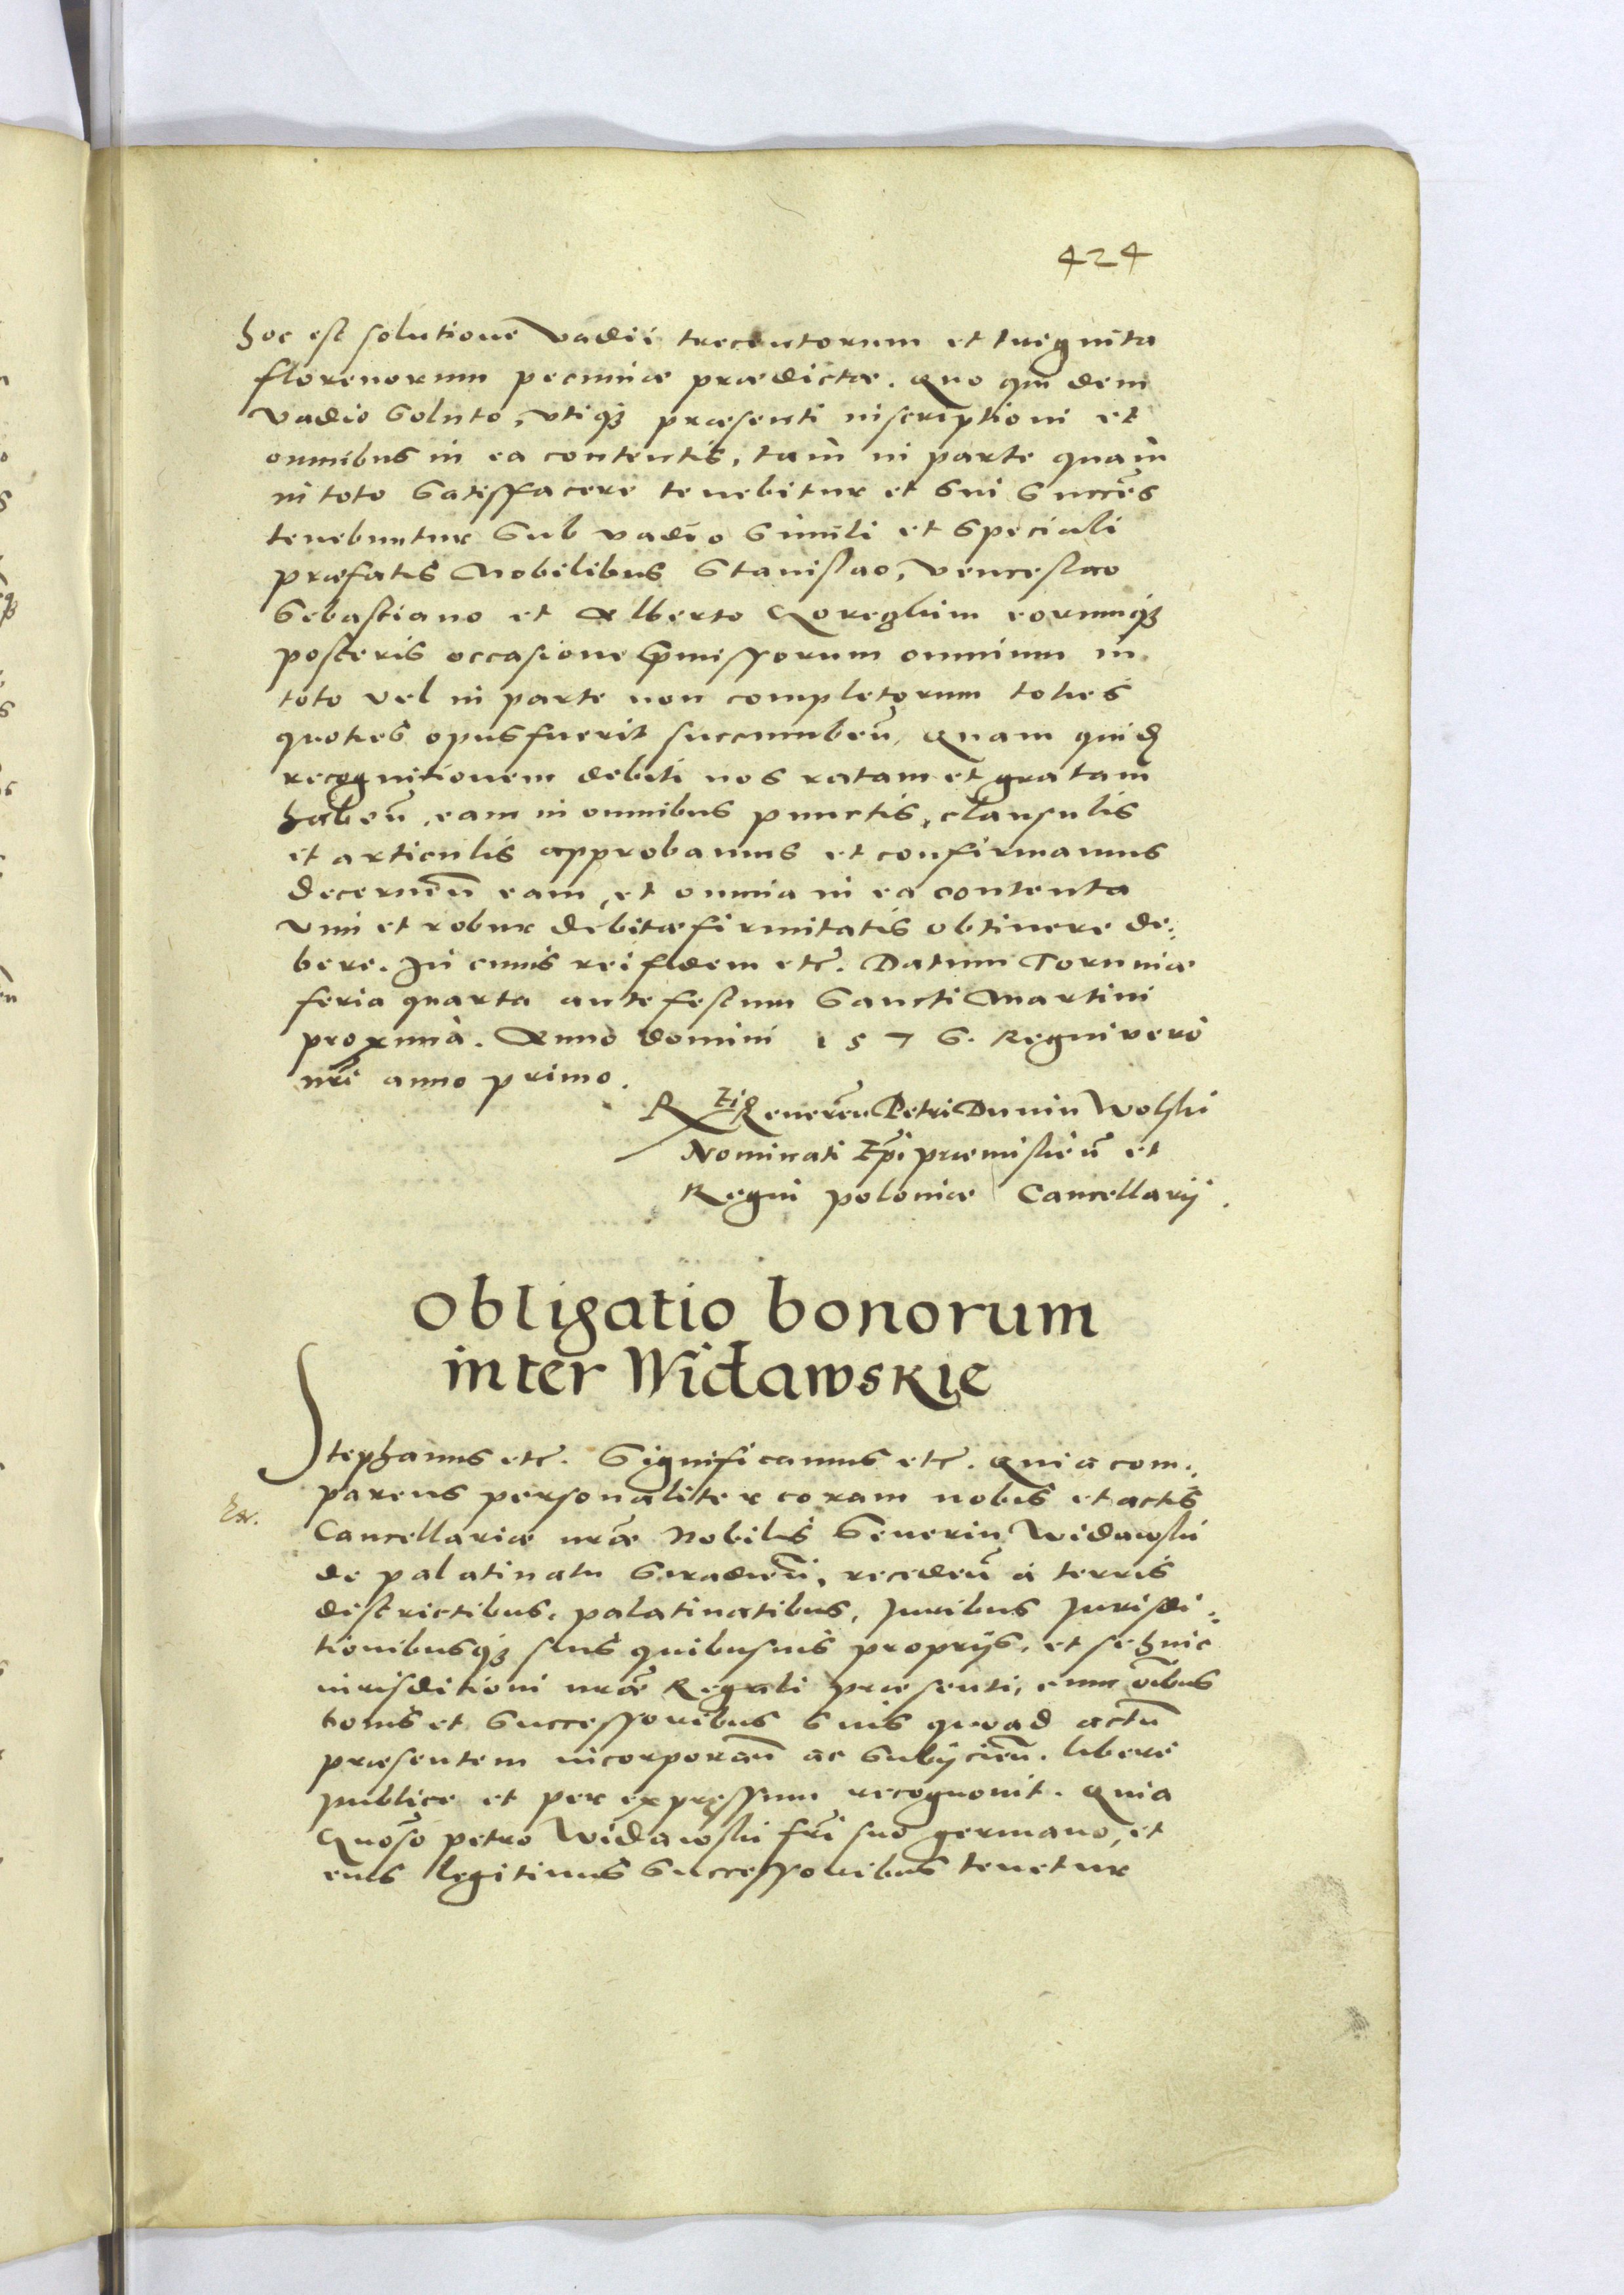 424
hoc est solutione vadii trecentorum et triginta
florenorum pecuniæ prædictæ. Quo quidem
vadio soluto, utiq3 præsenti inscriptioni et
omnibus in ea contentis, tam in parte quam
in toto satisffacere tenebitur et sui succes̃
tenebuntur sub vadio simili et speciali
præfatis Nobilibus Stanislao, Venceslao
Sebastiano et Alberto eorumq3
posteris occasione p̃missorum omnium in
toto vel in parte non completorum toties
quoties opus fuerit succumbeñ. Quam quid̃
recognitionem debiti nos ratam et gratam
habeñ, eam in omnibus punctis, clausulis
et articulis approbamus et confirmamus
decerneñ eam, et omnia in ea contenta
vim et robur debitæ firmitatis obtinere de:
bere. In cuius rei fidem etc. Datum Toruniæ
feria quarta ante festum Sancti Martini
proxima. Anno domini 1576. Regni vero
nr̃i anno primo.
R Reveren̄ Petri Dunin Wolski
Nominati Ep̃i præmislieñ et
Regni poloniæ Cancellarij.
Obligatio bonorum
inter Widawskie
Stephanus etc. Significamus etc. Quia com:
parens personaliter coram nobis et actis
Cancellariæ nr̃æ Nobilis Severin Widawski
de palatinatu Siradieñ, recedeñ a terris
districtibus, palatinatibus, Juribus Jurisdi:
tionibusq3 suis quibusuis proprijs, et se huic
iurisditioni nr̃æ Regali præsenti, cum oĩbus
bonis et successoribus suis quoad actũ
præsentem incorporañ ac subijcieñ. libere
publice et per expressum recognovit. Quia
Gnoso petro Widawski fr̃i suo germano, et
eius legitimis successoribus tenetur